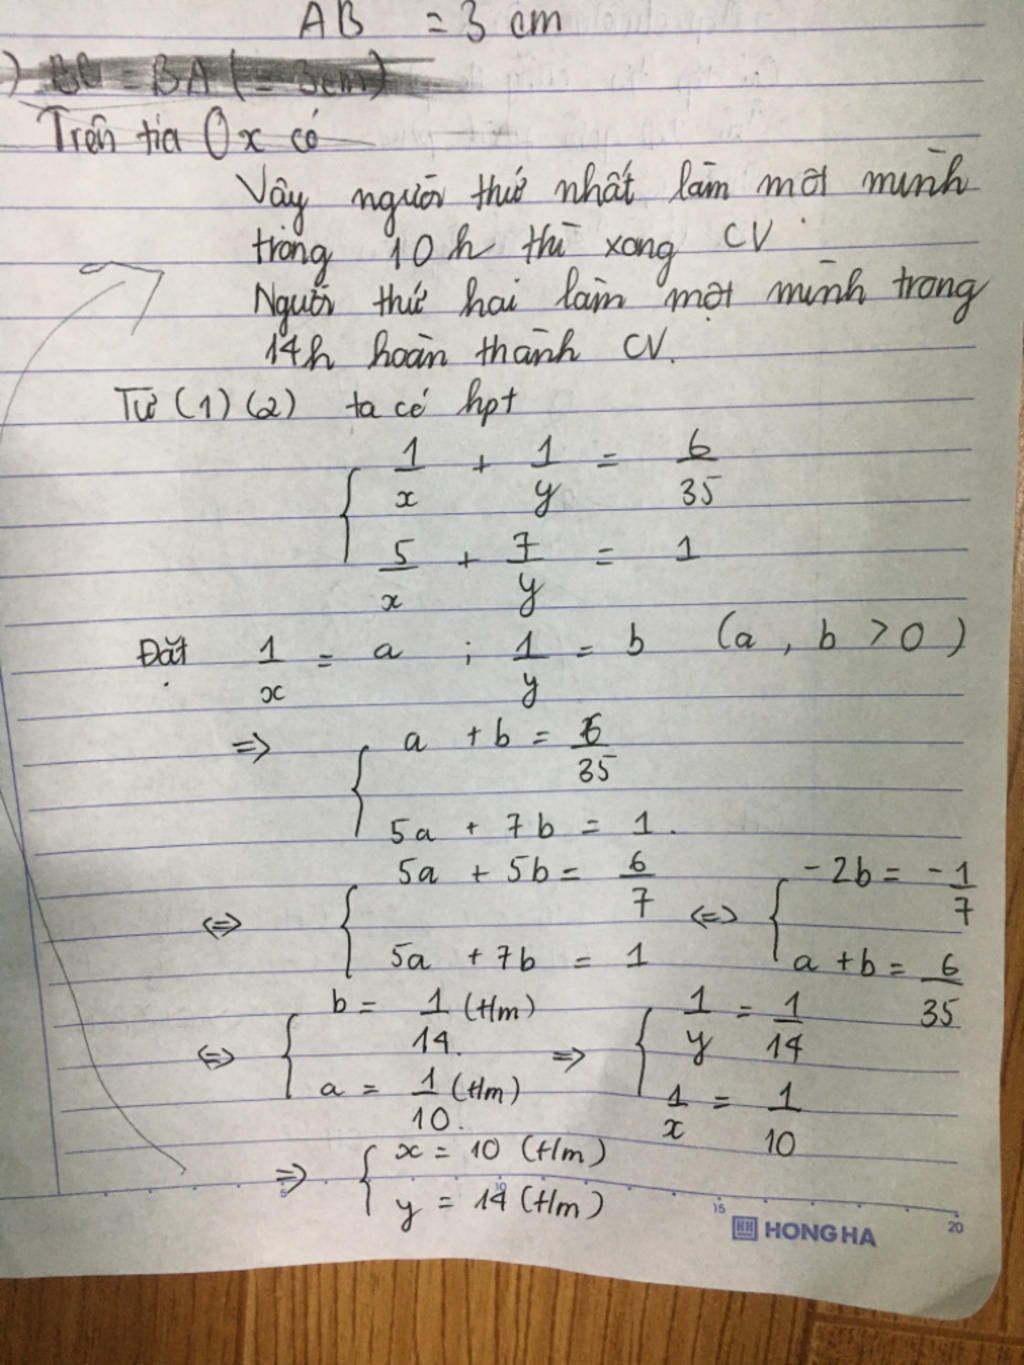 AB = 3 cm
) BC = BA (= 3cm)
Trên tia Ox có
Vây người thứ nhất làm một mình
trong 10h thì xong CV
Người thứ hai làm một mình trong
14h hoàn thành CV.
Từ (1) (2) ta có hpt
{ 1/x + 1/y = 6/35
5/x + 7/y = 1
Đặt 1/x = a ; 1/y = b (a, b > 0)
=> { a + b = 6/35
5a + 7b = 1.
<=> { 5a + 5b = 6/7 <=> { -2b = -1/7
5a + 7b = 1 a + b = 6/35
<=> { b = 1/14. (t/m) => { 1/y = 1/14
a = 1/10. (t/m) 1/x = 1/10
=> { x = 10 (t/m)
y = 14 (t/m)
5 10 15 20
HONG HA